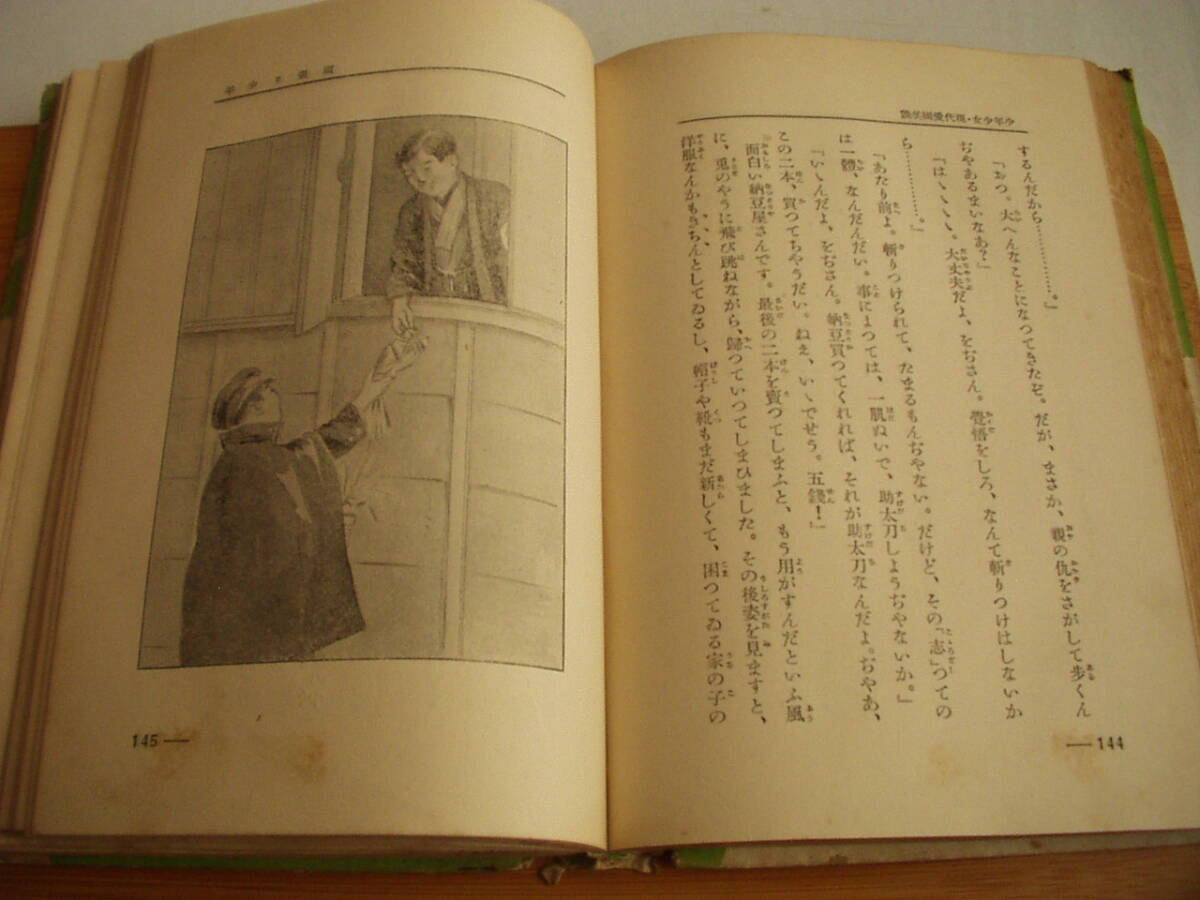 少年少女・現代愛國美談
するんだから…………。』
『おつ。大へんなことになつてきたぞ。だが、まさか、親の仇をさがして歩くん
ぢやあるまいなあ？』
『はゝゝゝ。大丈夫だよ、をぢさん。覺悟をしろ、なんて斬りつけはしないか
ら…………。』
『あたり前よ。斬りつけられて、たまるもんぢやない。だけど、その『志』つての
は一體、なんだんだい。事によつては、一肌ぬいで、助太刀しようぢやないか。』
『いゝんだよ、をぢさん。納豆買つてくれれば、それが助太刀なんだよ。ぢやあ、
この二本、買つてちやうだい。ねえ、いゝでせう。五錢！』
面白い納豆屋さんです。最後の二本を賣つてしまふと、もう用がすんだといふ風
に、兎のやうに飛び跳ねながら、歸つていつてしまひました。その後姿を見ますと、
洋服なんかもきちんとしてゐるし、帽子や靴もまだ新しくて、困つてゐる家の子の
144
と少年
145